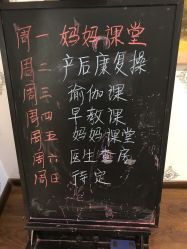 周一 妈妈课堂
周二 产后康复操
周三 瑜伽课
周四 早教课
周五 妈妈课堂
周六 医生查房
周日 待定